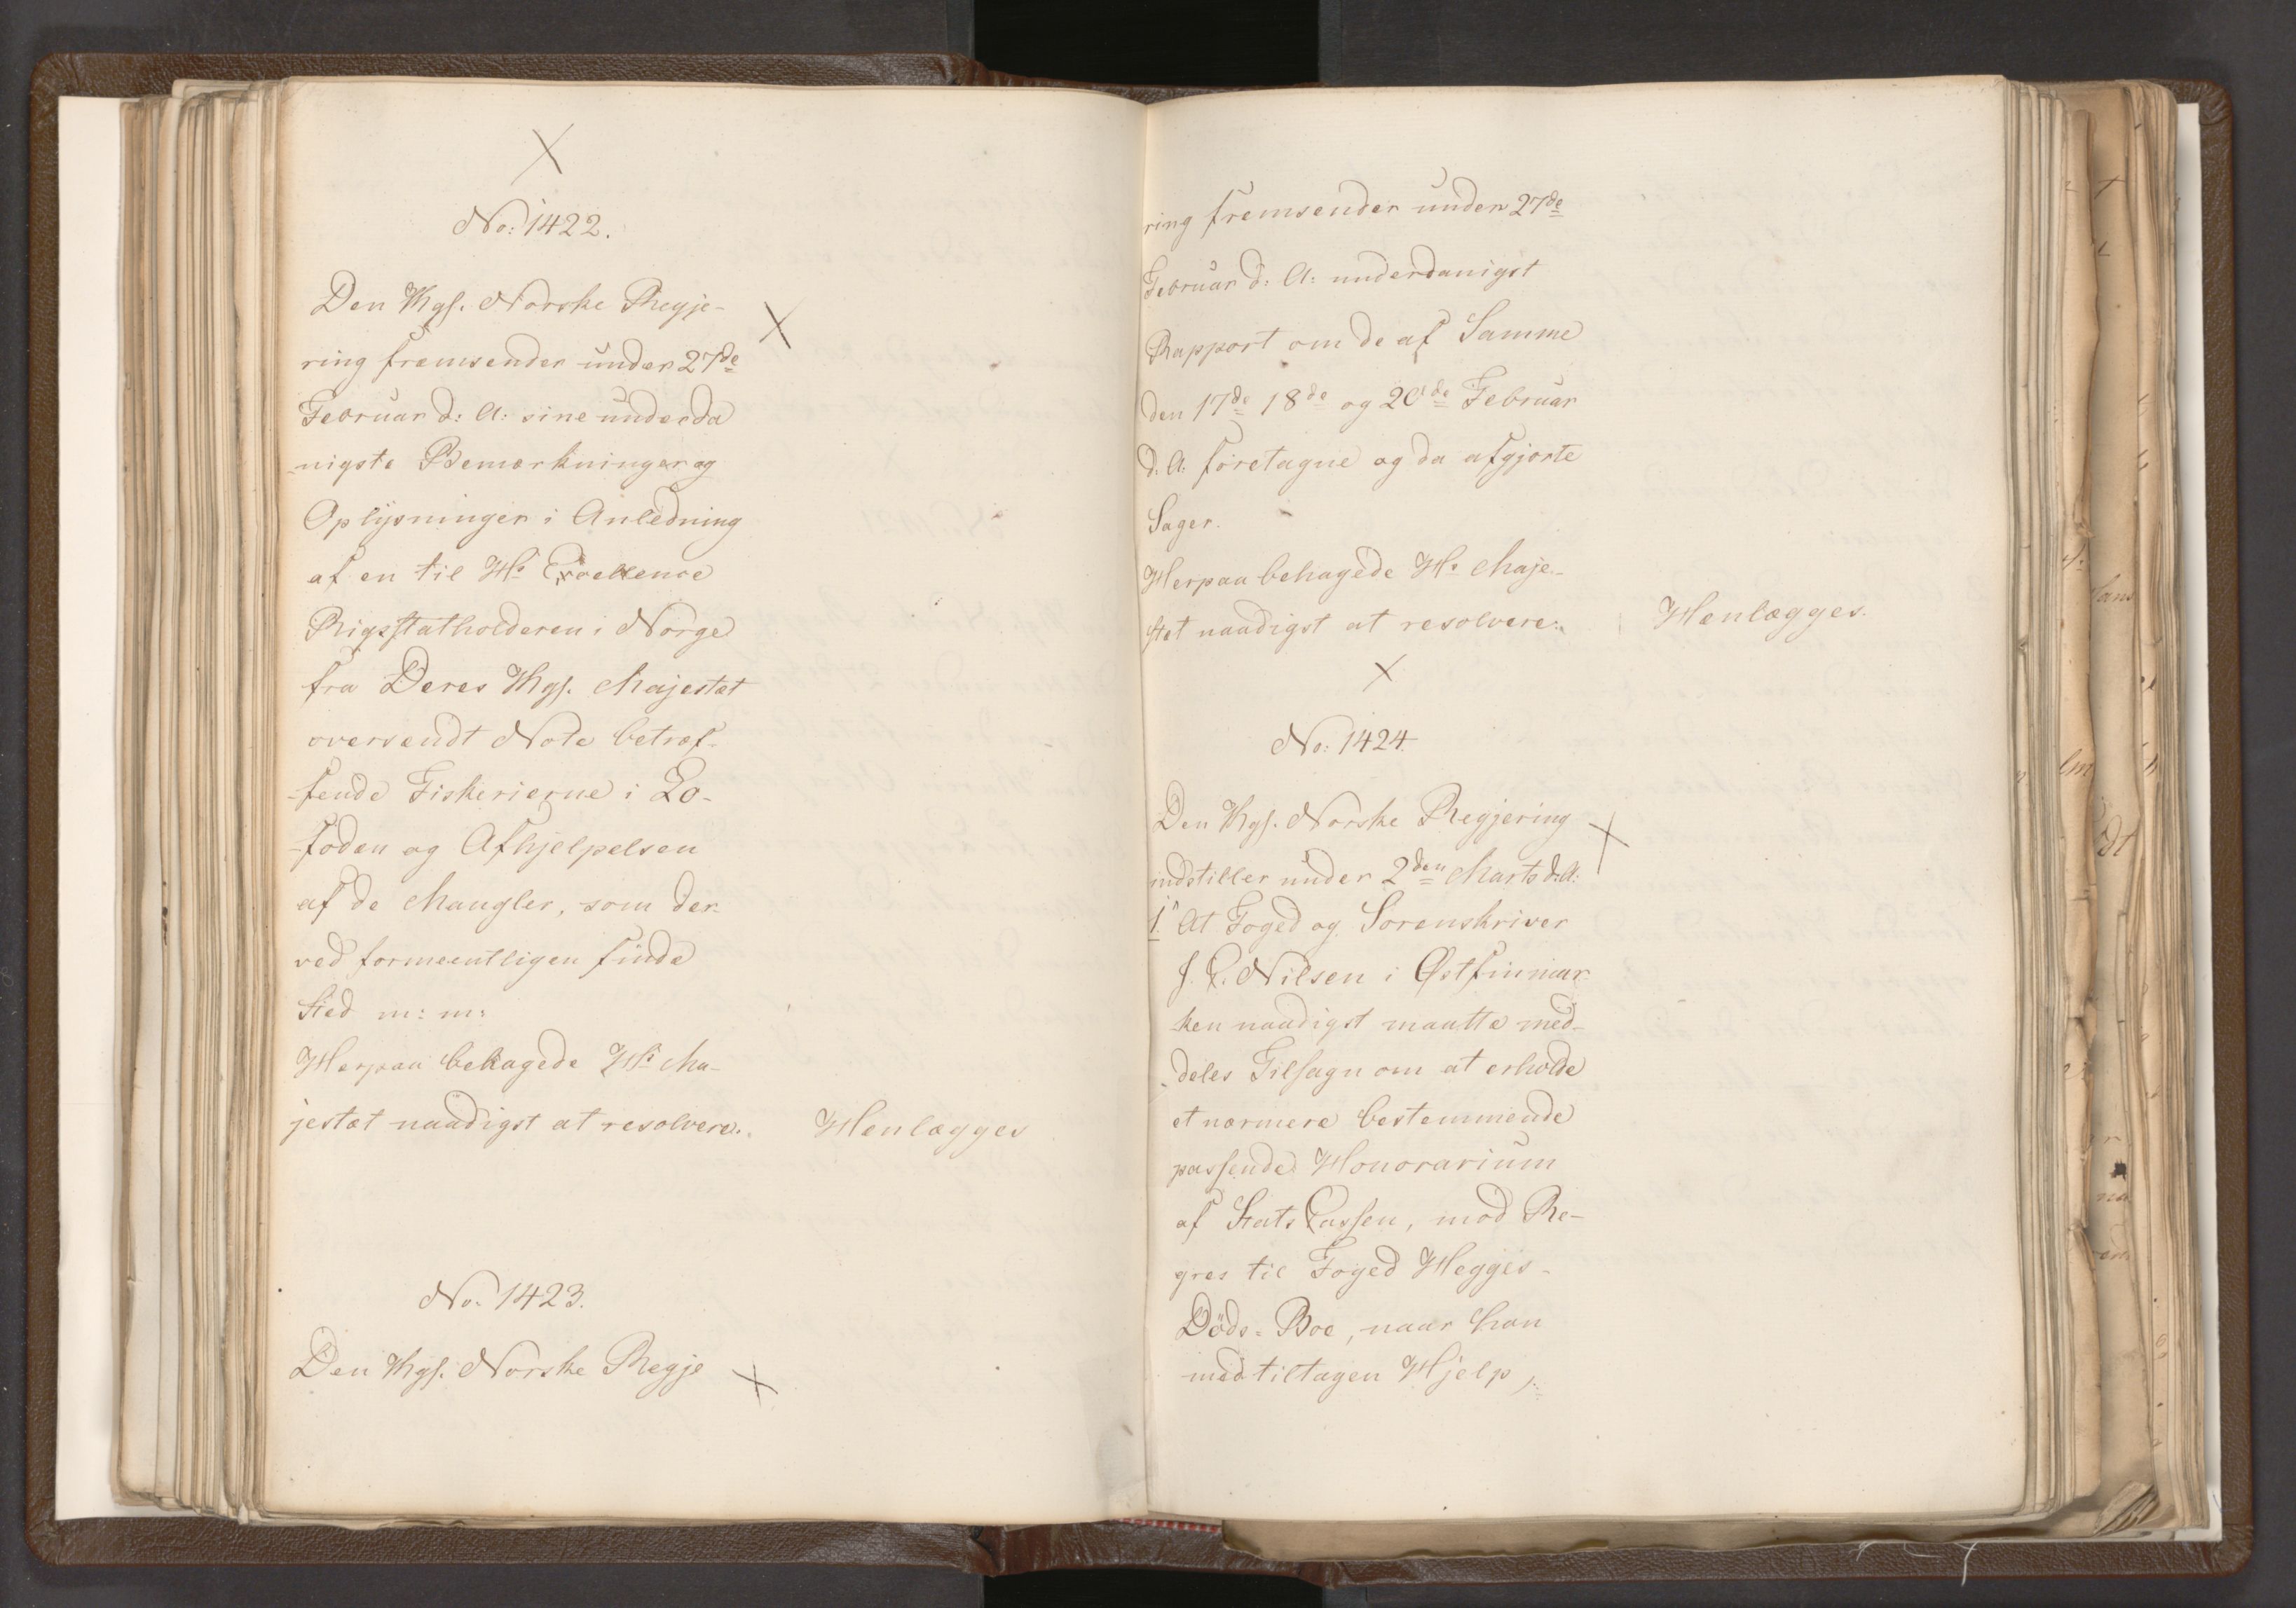 No: 1422.
Den Kgl. Norske Regje-
ring fremsender under 27de
Februar d: A: sine underda
-nigste Bemærkninger og
Oplysninger i Anledning
af en til Hs Excellence
Rigsstatholderen i Norge
fra Deres Kgl. Majestæt
oversendt Note betræf-
-fende Fiskerierne i Lo-
-foden og Afhjelpelsen
af de Mangler, som der-
ved formeentligen finde
Sted m: m:
Herpaa behagede Hs Ma-
jestæt naadigst at resolvere.
Henlægges
No: 1423.
Den Kgl. Norske Regje
ring fremsender under 27de
Februar d: A: underdanigst
Rapport om de af Samme
den 17de 18de og 20de Februar
d. A: foretagne og da afgjorte
Sager.
Herpaa behagede Hs Maje-
stæt naadigst at resolvere:
Henlægges.
No: 1424.
Den Kgl. Norske Regjering
indstiller under 2den Marts d: A:
1. At Foged og Sorenskriver
J. C. Nilsen i Østfinmar-
-ken naadigst maatte med-
-deles Tilsagn om at erholde
et nærmere bestemmende
passende Honorarium
af Stats Cassen, mod Re-
gres til Foged Hegges-
Döds-Boe, naar han
med tiltagen Hjelp,